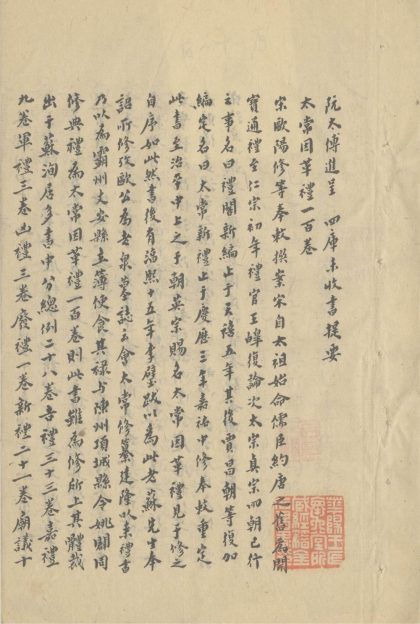 阮太傅進呈 四庫未收書提要
太常因革禮一百卷
宋歐陽修等奉敕撰案宋自太祖始命儒臣約唐之舊為開
寶通禮至仁宗初年禮官王皞復論次太宗真宗兩朝已行
之事名曰禮閣新編止于天禧五年其後賈昌朝等復加
編定名曰太常新禮止于慶歷三年嘉祐中修奉敕重定
此書至治平中上之于朝英宗賜名太常因革禮見于修之
自序如此然書後有淳熙十五年李壁跋以為此老蘇先生奉
詔所修攷歐公為老泉墓誌云會太常修纂建隆以來禮書
乃以為霸州文安縣主薄使食其祿與陳州項城縣令姚闢同
修典禮為太常因革禮一百卷則此書雖為修所上其體裁
出于蘇洵居多書中分總例二十八卷吉禮三十三卷嘉禮
九卷軍禮三卷凶禮三卷廢禮一卷新禮二十一卷廟議十